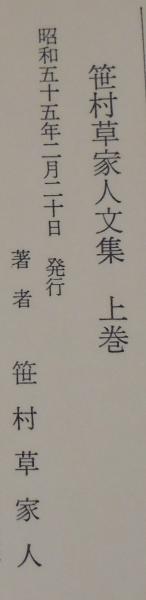 笹村草家人文集　上巻
昭和五十五年二月二十日　発行
著者　笹村草家人